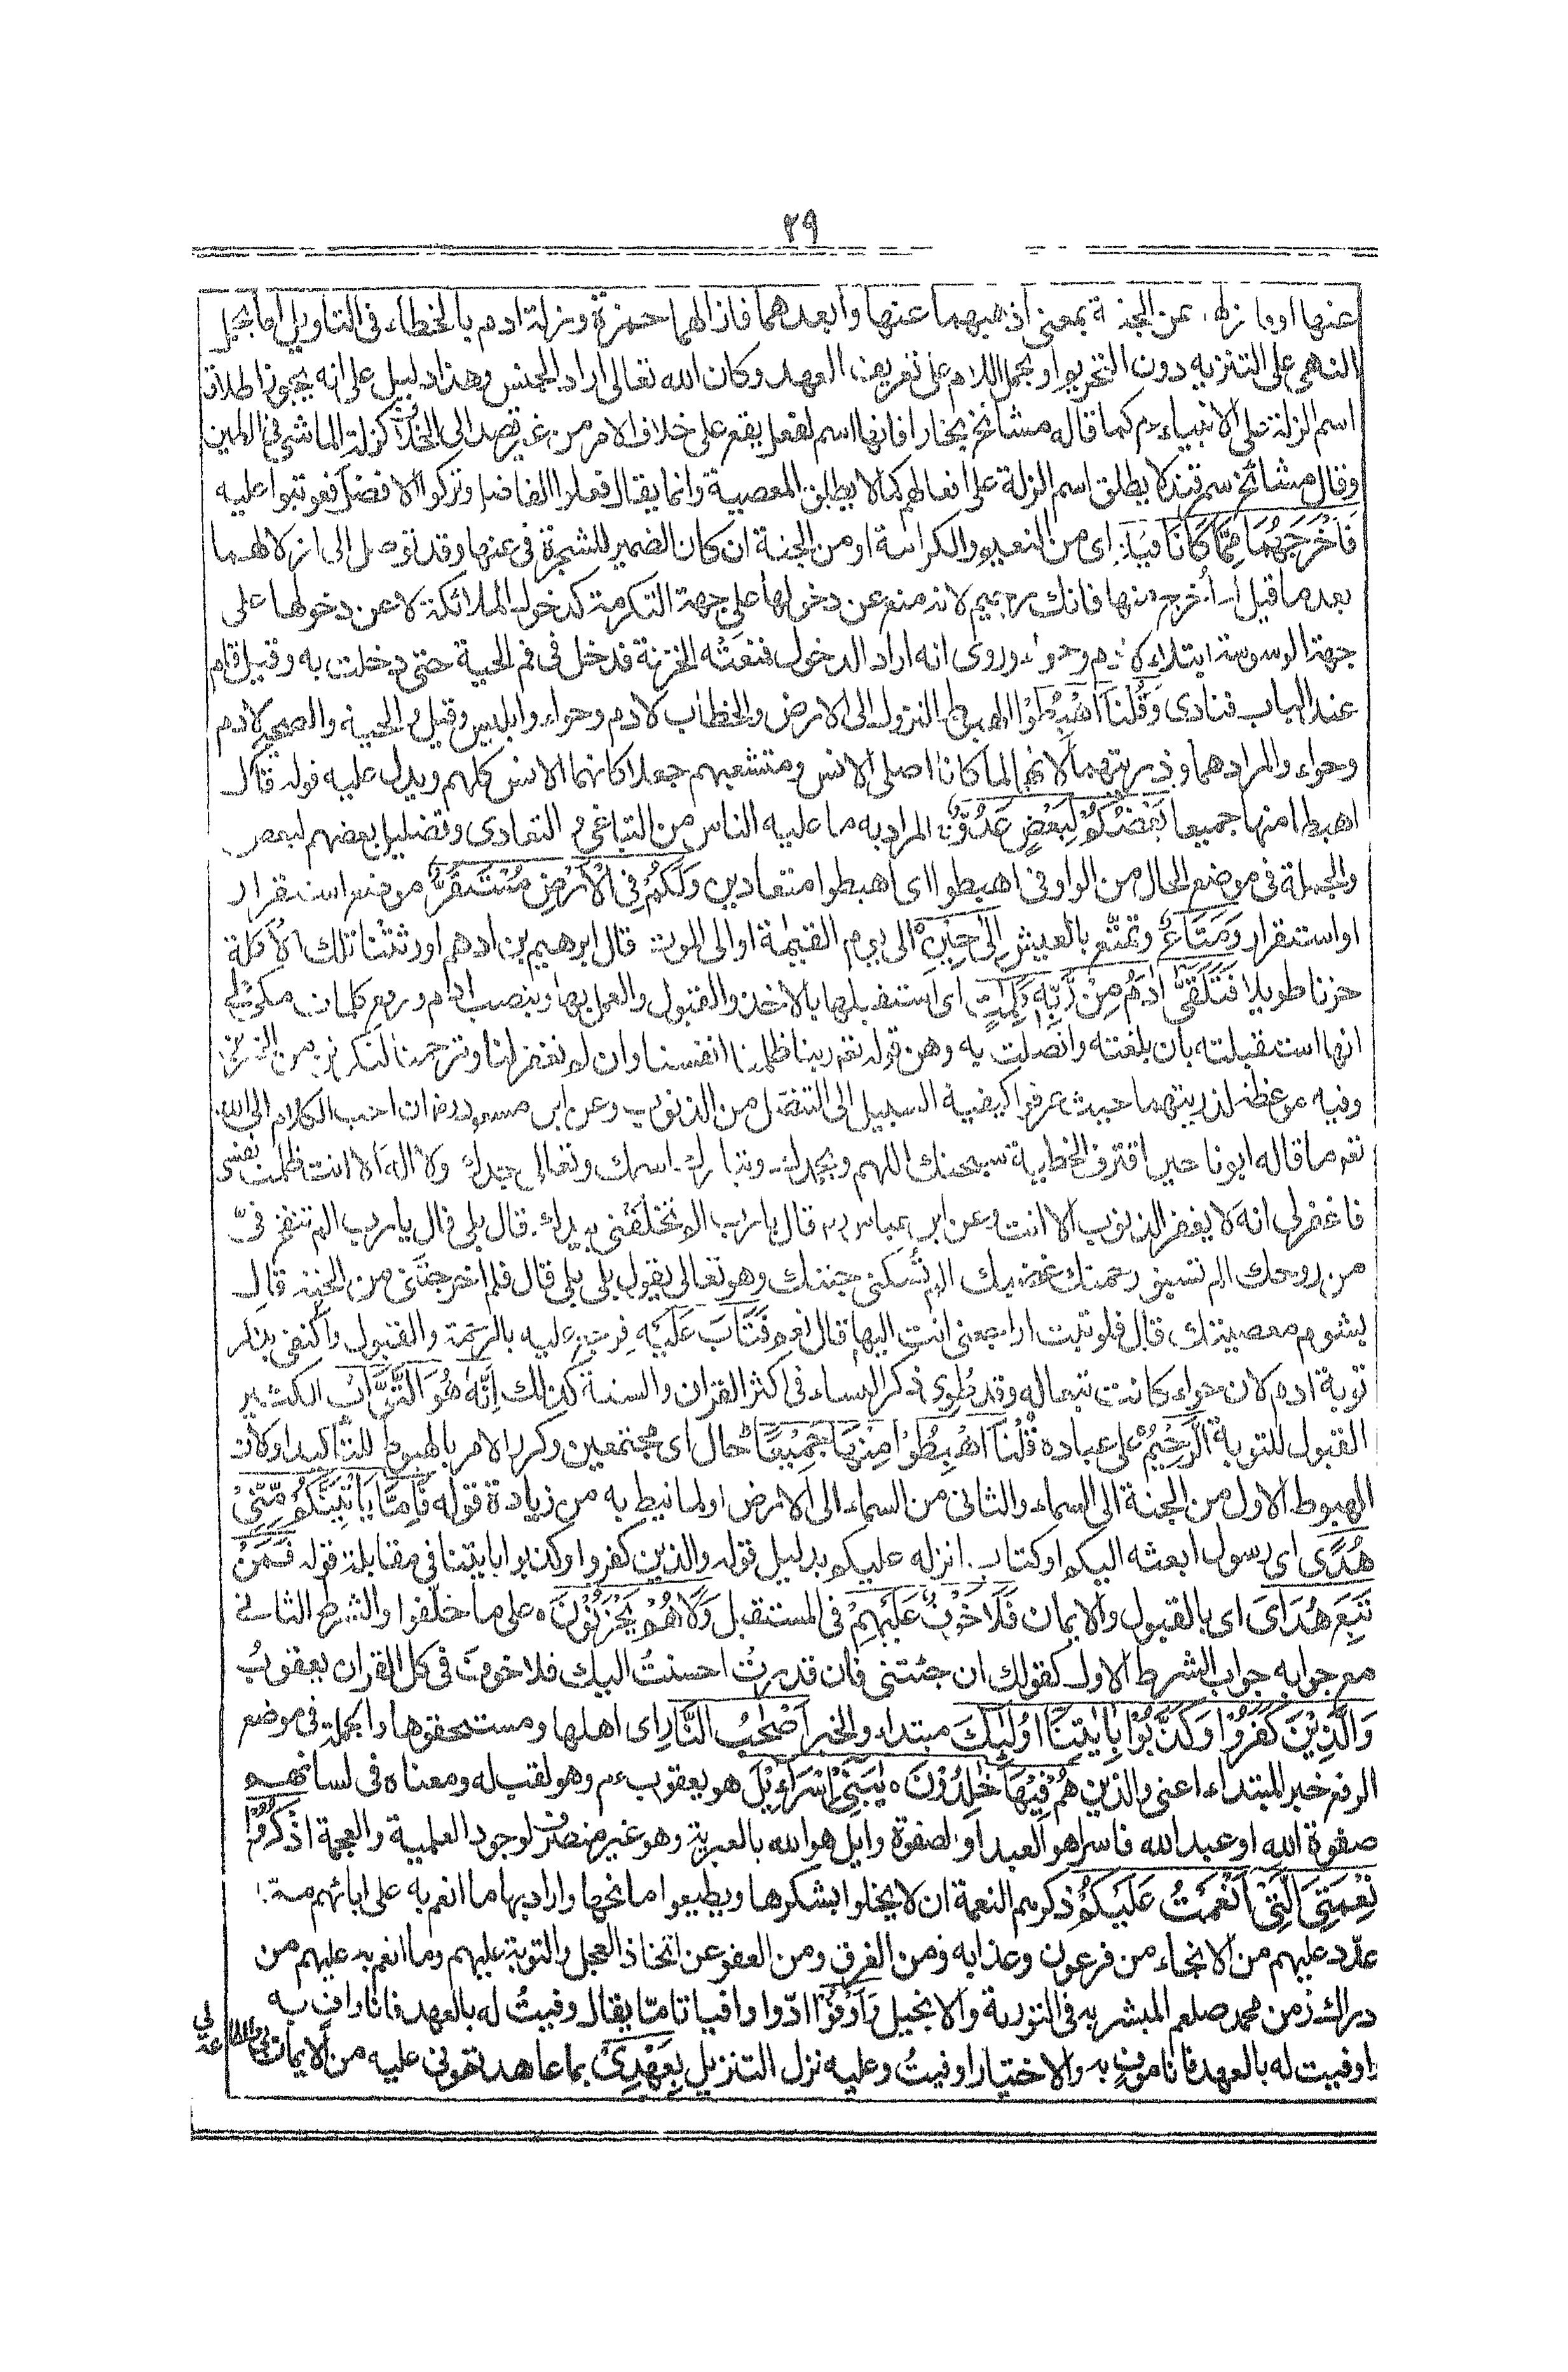 ٢٩
عنها او فازلهما عن الجنة بمعنى اذهبهما عنها وابعدهما فازالهما حمزة وزلة ادم بالخطاء فى التاويل اما بحمل
النهى على التنزيه دون التحريم او بحمل اللام على تعريف العهد وكان الله تعالى اراد الجنس وهذا دليل على انه يجوز اطلاق
اسم الزلة على الانبياءم كما قاله مشائخ بخارا فانها اسم لفعل يقع على خلاف الامر من غير قصد الى الخلاف كزلة الماشى فى الطين
وقال مشائخ سمرقند لا يطلق اسم الزلة على افعالهم كما لا يطلق المعصية وانما يقال فعلوا الفاضل وتركوا الافضل فعوتبوا عليه
فَاَخْرَجَهُمَا مِمَّا كَانَا فِيْهِ اى من النعيم والكرامة او من الجنة ان كان الضمير للشجرة فى عنها وقد توصل الى ازلالهما
بعد ما قيل له اُخرج منها فانك رجيم لانه منع عن دخولها على جهة التكرمة كدخول الملائكة لا عن دخولها على
جهة الوسوسة ابتلاء لادم وحواء وروى انه اراد الدخول فمنعته الخزنة فدخل فى فم الحية حتى دخلت به وقيل قام
عند الباب فنادى وَقُلْنَا اهْبِطُوْا الهبوط النزول الى الارض والخطاب لادم وحواء وابليس وقيل والحية والصحيح لادم
وحواء والمراد هما وذريتهما لانهما لما كانا اصلى الانس ومتشعبهم جعلا كانهما الانس كلهم ويدل عليه قوله قال
اهبطا منها جميعا بَعْضُكُمْ لِبَعْضٍ عَدُوٌّ المراد به ما عليه الناس من التباغى والتعادى وتضليل بعضهم لبعض
والجملة فى موضع الحال من الواو فى اهبطوا اى اهبطوا متعادين وَلَكُمْ فِى الْاَرْضِ مُسْتَقَرٌّ موضع استقرار
او استقرار وَمَتَاعٌ وتمتّع بالعيش اِلٰى حِيْنٍ الى يوم القيمة او الى الموت قال ابرهيم بن ادهم اورثتنا تلك الاكلة
حزنا طويلا فَتَلَقّٰى اٰدَمُ مِنْ رَّبِّهٖ كَلِمٰتٍ اى استقبلها بالاخذ والقبول والعمل بها وبنصب ادم ورفع كلمات مكى على
انها استقبلته بان بلغته واتصلت به وهن قوله تعه ربنا ظلمنا انفسنا وان لم تغفر لنا وترحمنا لنكونن من الخسرين
وفيه موعظة لذريتهما حيث عرفوا كيفية السبيل الى التنصّل من الذنوب وعن ابن مسعود رض ان احب الكلام الى الله
تعه ما قاله ابونا حين اقترف الخطيئة سبحنك اللهم وبحمدك وتبارك اسمك وتعالى جدك ولا اله الا انت ظلمت نفسى
فاغفرلى انه لا يغفر الذنوب الا انت وعن ابن عباس رض قال يا رب الم تخلقنى بيدك قال بلى قال يا رب الم تنفخ فىّ
من روحك الم تسبق رحمتك غضبك الم تُسكنى جنتك وهو تعالى يقول بلى بلى قال فلم اخرجتَنى من الجنة قال
بشوم معصيتك قال فلو تبت اراجعى انت اليها قال نعم فَتَابَ عَلَيْهِ فرجع عليه بالرحمة والقبول واكتفى بذكر
توبة ادم لان حواء كانت تبعا له وقد طُوى ذكر النساء فى اكثر القران والسنة كذلك اِنَّهٗ هُوَ التَّوَّابُ الكثير
القبول للتوبة الرَّحِيْمُ على عباده قُلْنَا اهْبِطُوْا مِنْهَا جَمِيْعًا حال اى مجتمعين وكرر الامر بالهبوط للتأكيد او لان
الهبوط الاول من الجنة الى السماء والثانى من السماء الى الارض او لما نيط به من زيادة قوله فَاِمَّا يَاْتِيَنَّكُمْ مِّنِّىْ
هُدًى اى رسول ابعثه اليكم او كتاب انزله عليكم بدليل قوله والذين كفروا وكذبوا بايتنا فى مقابلة قوله فَمَنْ
تَبِعَ هُدَاىَ اى بالقبول والايمان فَلَا خَوْفٌ عَلَيْهِمْ فى المستقبل وَلَا هُمْ يَحْزَنُوْنَ ه على ما خلّفوا والشرط الثانى
مع جوابه جواب الشرط الاول كقولك ان جئتنى فان قدرتُ احسنتُ اليك فلا خوفَ فى كل القران يعقوبُ
وَالَّذِيْنَ كَفَرُوْا وَكَذَّبُوْا بِاٰيٰتِنَا اُولٰٓئِكَ مبتداء والخبر اَصْحٰبُ النَّارِ اى اهلها ومستحقوها والجملة فى موضع
الرفع خبر المبتداء اعنى والذين هُمْ فِيْهَا خٰلِدُوْنَ ه يٰبَنِىْٓ اِسْرَآءِيْلَ هو يعقوب ءم وهو لقب له ومعناه فى لسانهم
صفوة الله او عبد الله فاسرا هو العبد او الصفوة وايل هو الله بالعبرية وهو غير منصرف لوجود العلمية والعجمة اذْكُرُوْا
نِعْمَتِىَ الَّتِىْٓ اَنْعَمْتُ عَلَيْكُمْ ذكرهم النعمة ان لا يخلوا بشكرها ويطيعوا مانحها واراد بها ما انعم به على ابائهم مما
عدّد عليهم من الانجاء من فرعون وعذابه ومن الغرق ومن العفو عن اتخاذ العجل والتوبة عليهم وما انعم به عليهم من
دراك زمن محمد صلعم المبشر به فى التورية والانجيل وَاَوْفُوْا ادّوا وافيا تامّا يقال وفيتُ له بالعهد فانا وافٍ به
واوفيت له بالعهد فانا موفٍ به والاختيار اوفيتُ وعليه نزل التنزيل بِعَهْدِىْ بما عاهدتمونى عليه من الايمان بى والطاعة لى